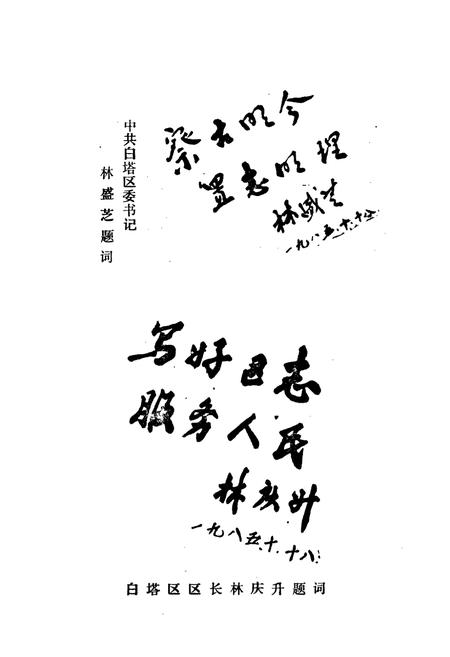 察古明今
置志明理
林盛芝
一九八五.十.十五
中共白塔区委书记
林盛芝题词
写好区志
服务人民
林庆升
一九八五.十.十八
白塔区区长林庆升题词